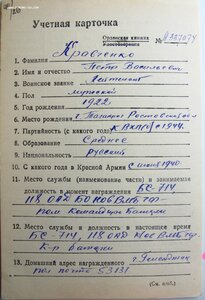 Учетная карточка
Орденская книжка
№ 357074
Удостоверение
Кравченко
1. Фамилия
2. Имя и отчество Петр Васильевич
3. Воинское звание Лейтенант
4. Пол мужской
5. Год рождения 1922
6. Место рождения г. Таганрог Ростовской
7. Партийность (с какого года) 1944.
8. Образование Среднее
9. Национальность русский
10. С какого года в Красной Армии с июня 1940.
11. Место службы (наименование части) и занимаемая
должность в момент награждения БС-714,
118 ОАД
12. Место службы и должность в настоящее время
БС-714, 118 ОАД
К-р батареи
13. Домашний адрес награжденного г. Геленджик
пол. почта 53131
(См. на об.)